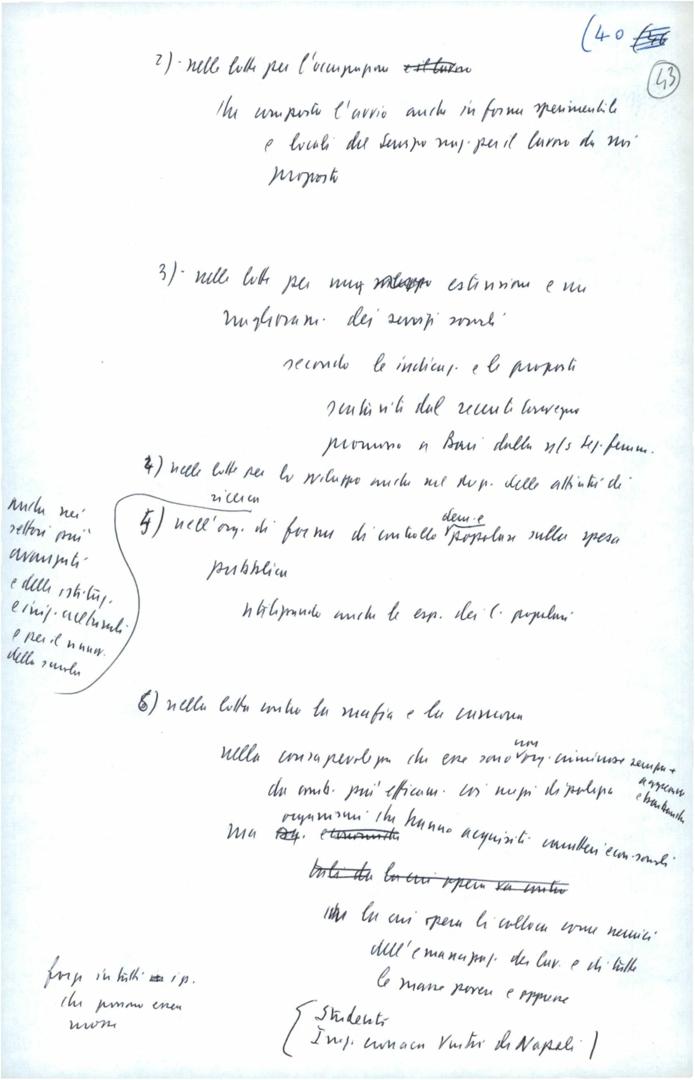 (40
43
2)- nelle lotte per l'occupazione e il lavoro
che comporta l'avvio anche in forma sperimentale
e locali del Servizo naz. per il lavoro da noi
proposto
3)- nelle lotte per una sviluppo estensione e un
miglioram. dei servizi sociali
secondo le indicaz. e le proposte
scaturiti dal recente convegno
promosso a Bari dalla n/s sez. femm.
4) nelle lotte per lo sviluppo anche nel Mezz. delle attività di
ricerca
anche nei
settori più
avanzati
e delle istituz.
e iniz. culturali
e per il rinnov.
della scuola
5) nell'org. di forme di controllo dem. e popolare sulla spesa
pubblica
utilizzando anche le esp. dei C. popolari
6) nella lotta contro la mafia e la camorra
nella consapevolezza che esse sono non org. criminose sempre
da comb. più efficam. coi mezzi di polizia
ma org. economiche organismi che hanno acquisito caratteri econ-sociali
la cui opera va contro
la cui opera li colloca come nemici
dell'emancipaz. dei lav. e di tutte
le masse povere e oppresse
forze in tutti i p.
che possono essere
mosse
Studenti
Napoli)